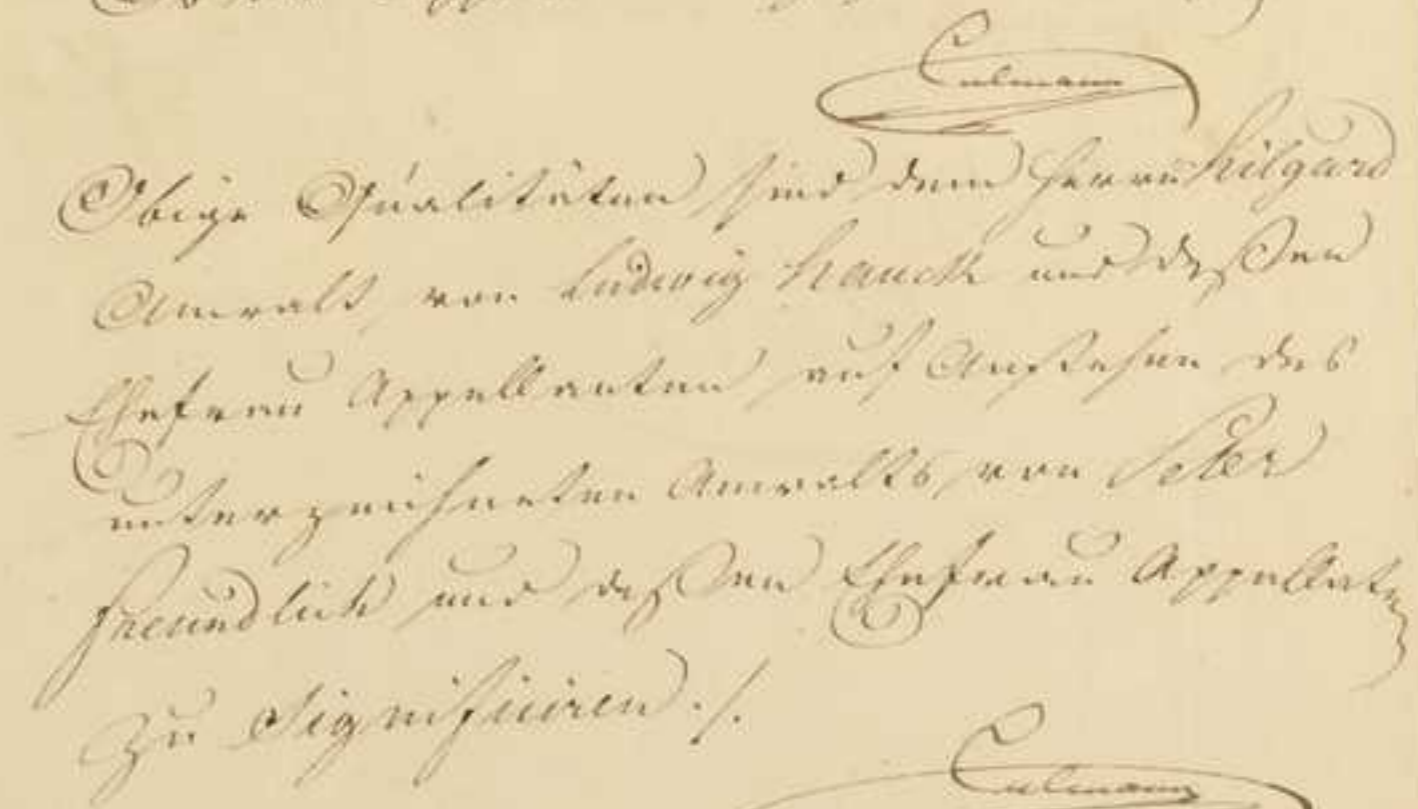 Culmann
Obige Qualitäten sind dem Herrn Hilgard
Anwalt von Ludwig Hauck und deßen
Ehefrau Appellanten auf Anstehen des
unterzeichneten Anwalts von Peter
Freundlich und deßen Ehefrau Appellaten
zu Significiren ./.
Culmann